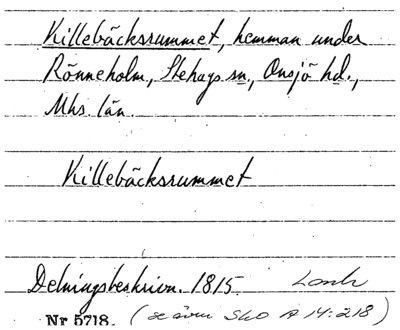 Killebäcksrummet, hemman under
Rönneholm, Stehags sn., Onsjö hd.,
Mhs. län.
Killebäcksrummet
Delningsbeskrivn. 1815. Lantm
Nr 5718. (se även Sko A 14:218)